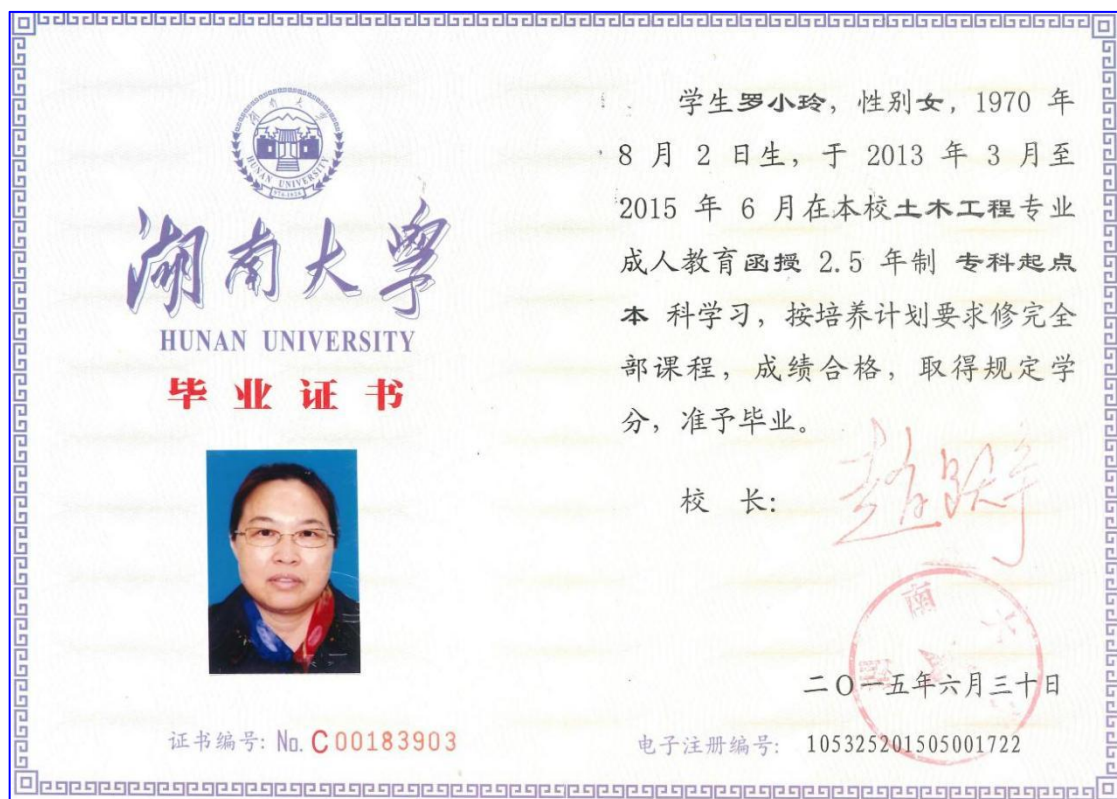 湖南大学
HUNAN UNIVERSITY
湖南大学
HUNAN UNIVERSITY
毕业证书
证书编号: No. C 00183903
学生罗小玲，性别女，1970 年
8 月 2 日生，于 2013 年 3 月至
2015 年 6 月在本校土木工程专业
成人教育函授 2.5 年制 专科起点
本 科学习，按培养计划要求修完全
部课程，成绩合格，取得规定学
分，准予毕业。
校 长:
南大
二〇一五年六月三十日
电子注册编号: 105325201505001722